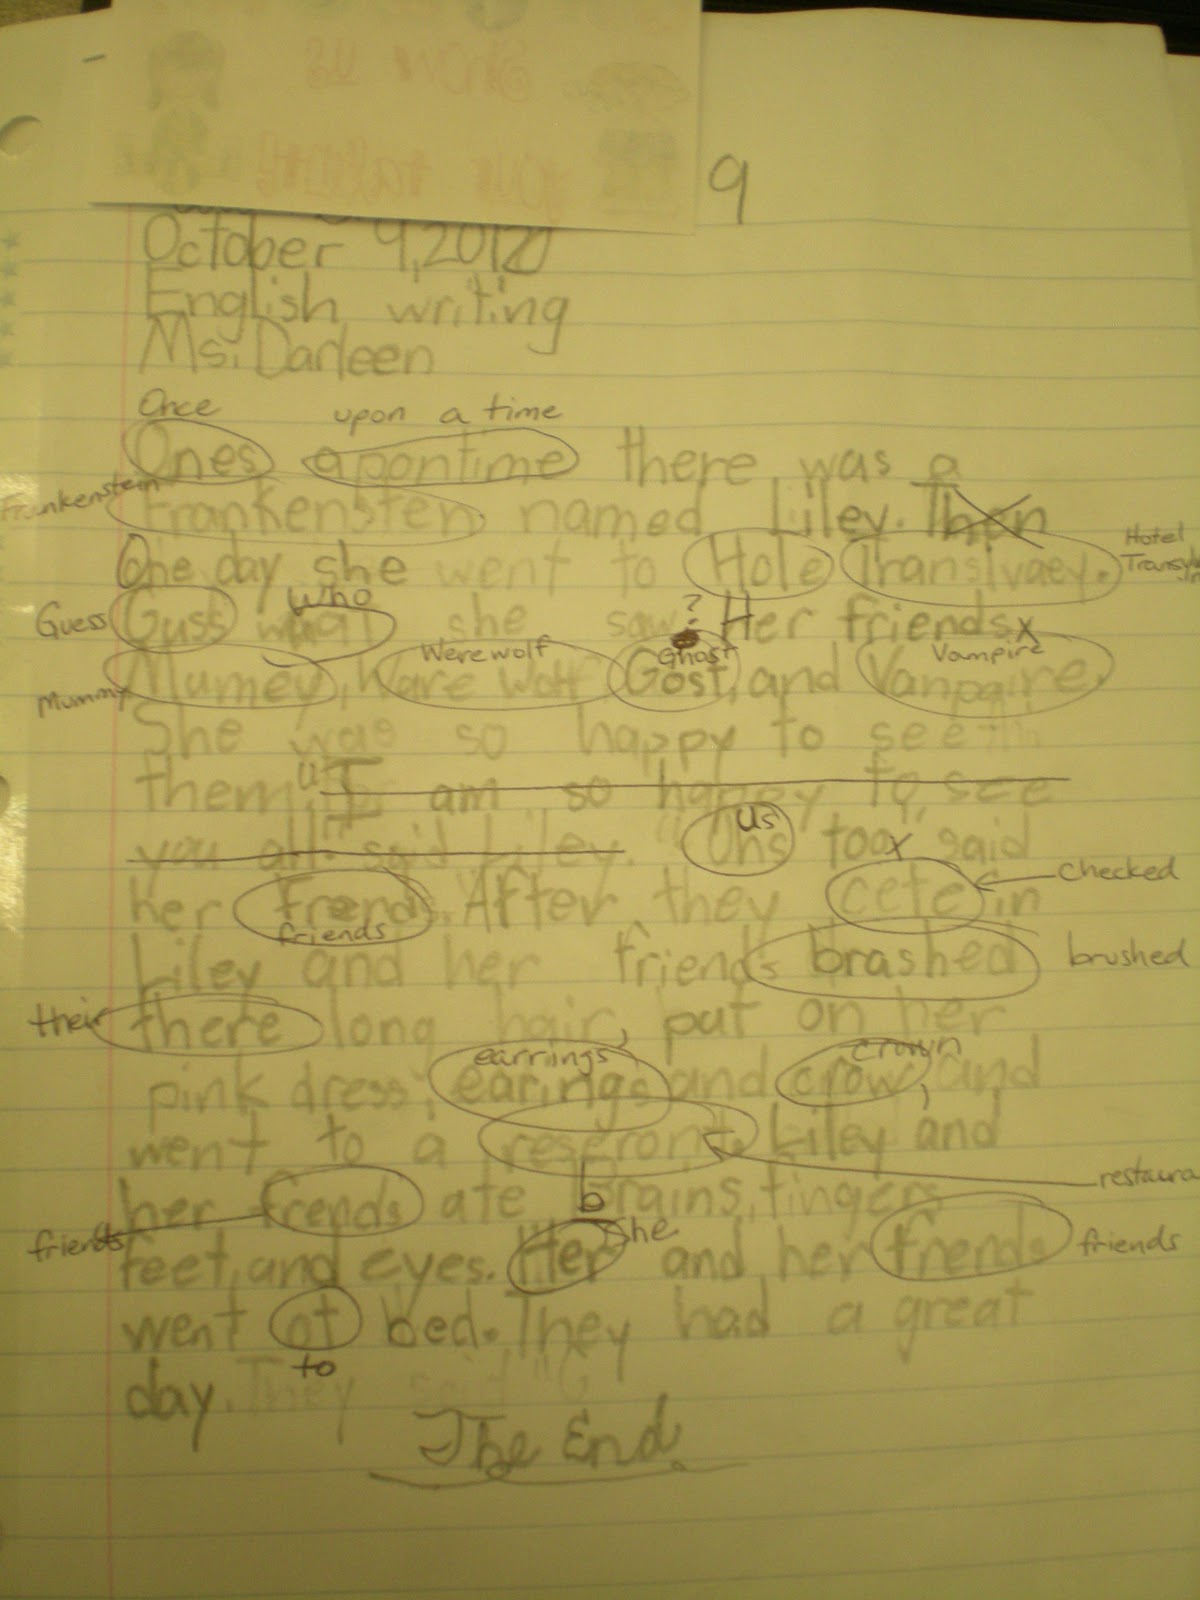 9
October 9, 2012
English writing
Ms. Darleen
Once upon a time
Ones apontime there was a
Frankenstein
Frankensten named Liley. Then
One day she went to Hole Translvaey.
Hotel
Guess who ?
Guss what she saw Her friends x
Werewolf Ghost Vampire
Mummy Mumey, Ware Wolf Gost, and Vanpaire.
She was so happy to see
them. "I am so happy to see
you all" said Liley. "Uhs too x said
us
her frend. After they cete in
friends
checked
Liley and her friends brashed
brushed
their there long hair, put on her
earrings crown
pink dress, earings and crow, and
went to a Liley and
her frends ate brains, fingers
friends
feet, and eyes. Her and her frends
She friends
went ot bed. They had a great
to
day. They said
The End.